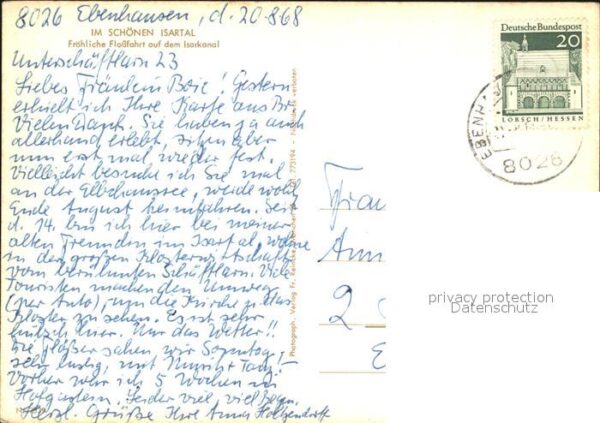 8026 Ebenhausen, d. 20.868
IM SCHÖNEN ISARTAL
Fröhliche Floßfahrt auf dem Isarkanal
Unterschäftlarn 23
Liebes Fräulein Boie! Gestern
erhielt ich Ihre Karte aus Br.
Vielen Dank. Sie haben ja auch
allerhand erlebt, sitzen aber
nun erst mal wieder fest.
Vielleicht besuche ich Sie mal
an der Elbchaussee, werde wohl
Ende August heimfahren. Seit
d. 14. bin ich hier bei meiner
alten Freundin im Isartal, wohne
in der großen Klosterwirtschaft
vom berühmten Schäftlarn. Viele
Touristen machen den Umweg
(per Auto), um die Kirche u. das
Kloster zu sehen. Es ist sehr
hübsch hier. Nur das Wetter!!
Die Flößer sahen wir Sonntag,
sehr lustig, mit Musik u. Tanz!
Vorher war ich 5 Wochen in
Hofgastein. Leider viel, viel Regen.
Herzl. Grüße Ihre Anna Holzendorff
Photograph. Verlag Fr.
773194
Deutsche Bundespost
20
LORSCH/HESSEN
8026
Frau
2
privacy protection
Datenschutz